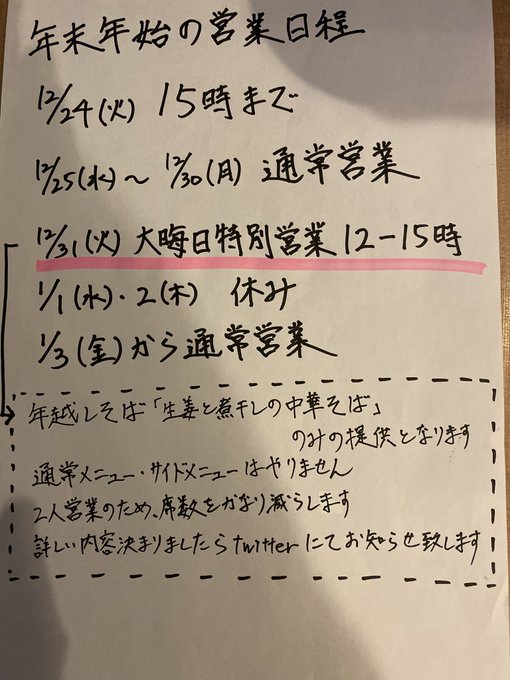 年末年始の営業日程
12/24(火) 15時まで
12/25(水)～12/30(月) 通常営業
12/31(火) 大晦日特別営業 12-15時
1/1(水)・2(木) 休み
1/3(金)から通常営業
年越しそば「生姜と煮干しの中華そば」
のみの提供となります
通常メニュー・サイドメニューはやりません
2人営業のため、席数をかなり減らします
詳しい内容決まりましたらtwitterにてお知らせ致します